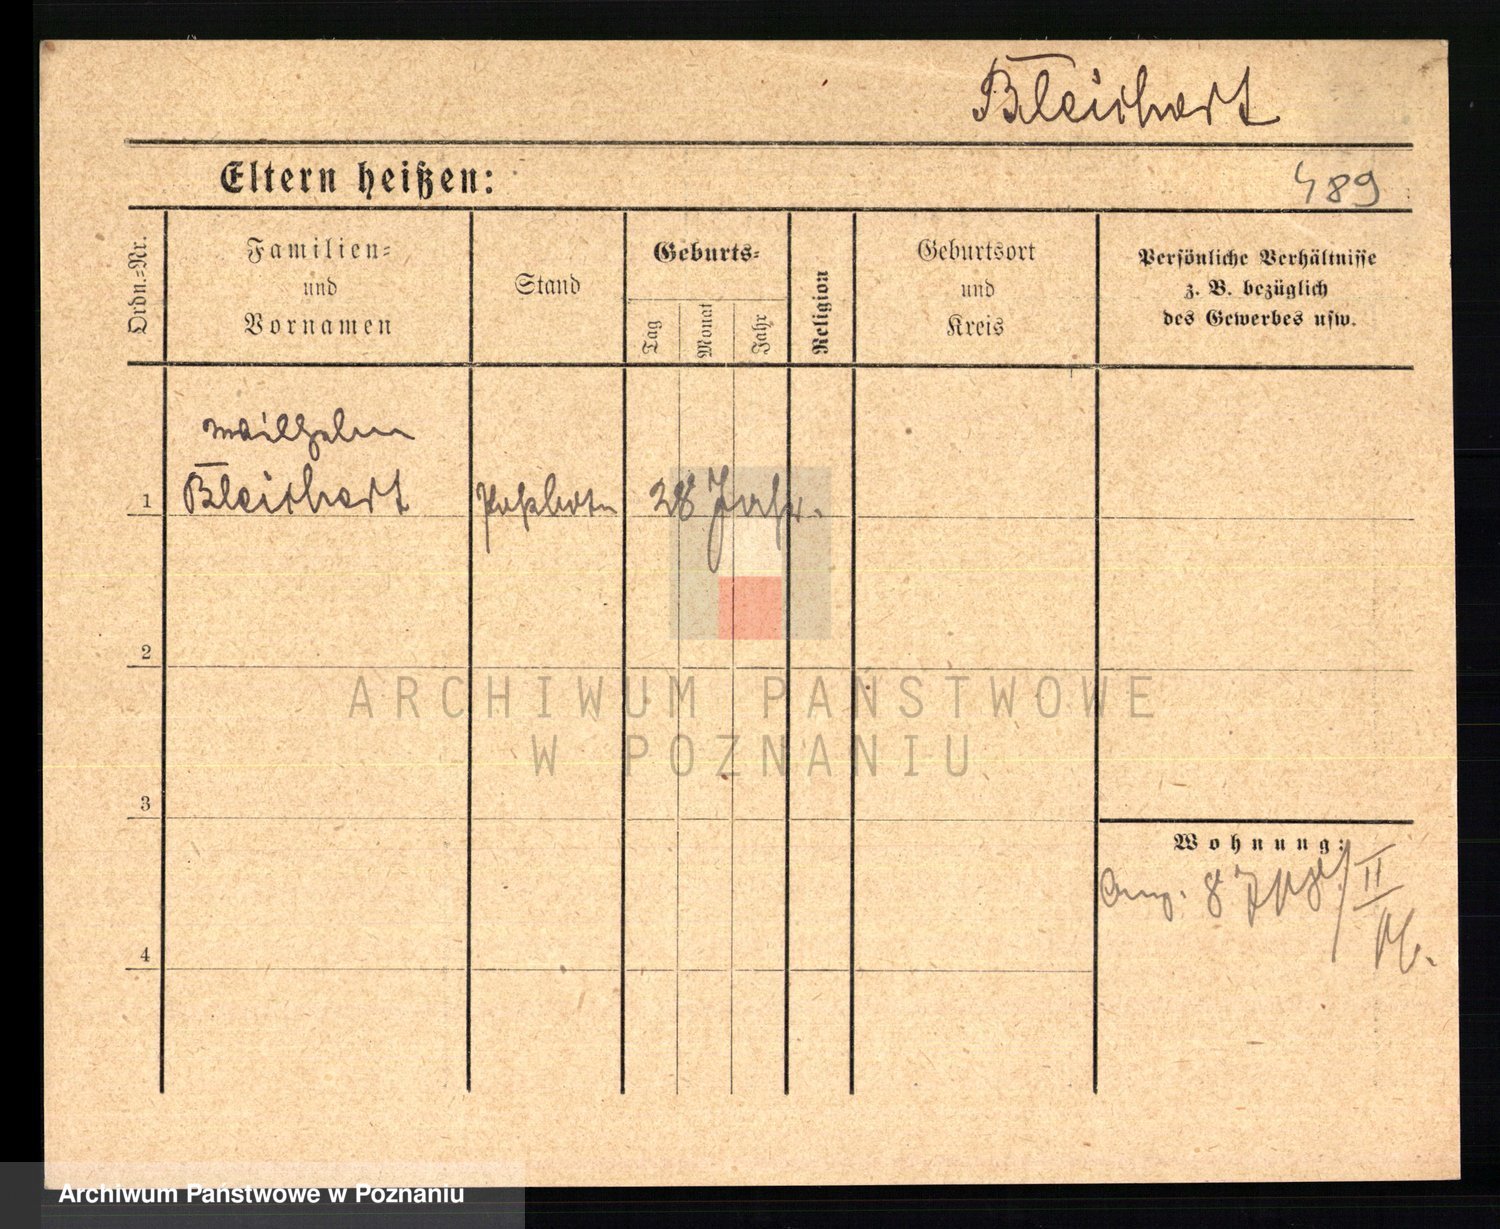 Bleichert
Eltern heißen:
489
Ordn.-Nr.
Familien-
und
Vornamen
Stand
Geburts-
Tag
Monat
Jahr
Religion
Geburtsort
und
Kreis
Persönliche Verhältnisse
z. B. bezüglich
des Gewerbes usw.
Wilhelm
1 Bleichert 28 Jahr.
2
ARCHIWUM PAŃSTWOWE
W POZNANIU
3
Wohnung:
4
Archiwum Państwowe w Poznaniu